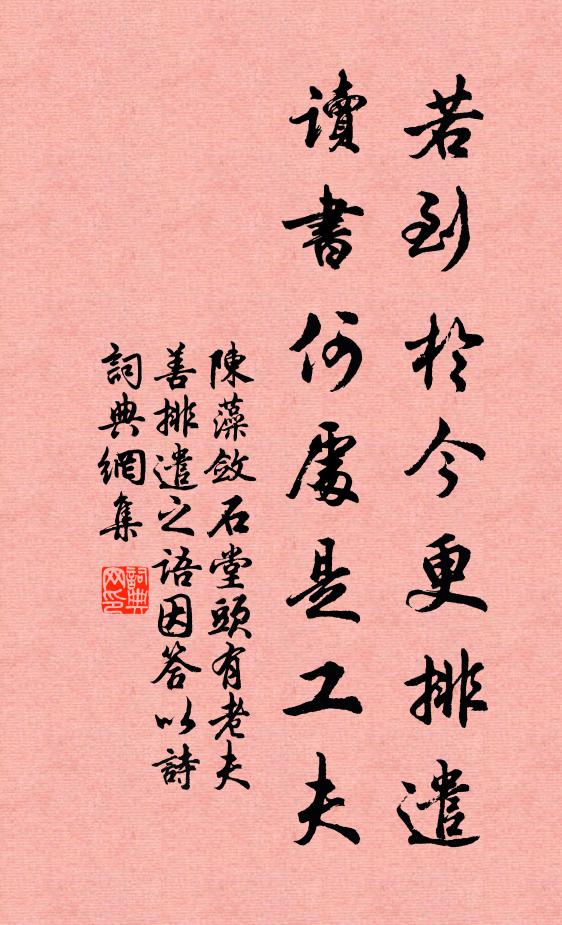 若到於今更排遣
讀書何處是工夫
陳藻斂石堂頭有老夫
善排遣之語因答以詩
詞典網集
詞典网印